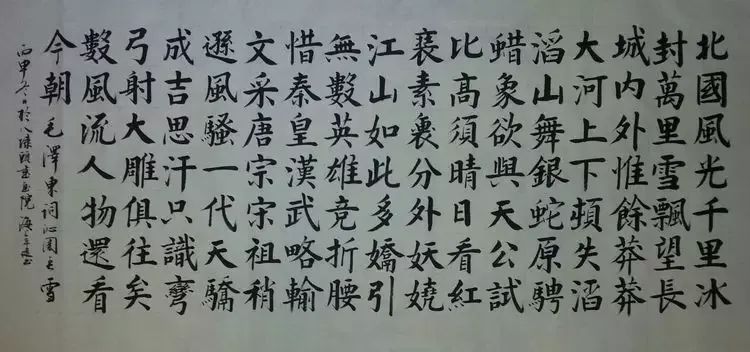 北國風光千里冰
封萬里雪飄望長
城内外惟餘莽莽
大河上下頓失滔
滔山舞銀蛇原騁
蜡象欲與天公試
比高須晴日看紅
褒素裹分外妖嬈
江山如此多嬌引
無數英雄竞折腰
惜秦皇漢武略輸
文采唐宗宋祖稍
遜風騷一代天驕
成吉思汗只識彎
弓射大雕俱往矣
數風流人物還看
今朝 毛澤東詞沁園春雪
丙申冬日於八書畫院